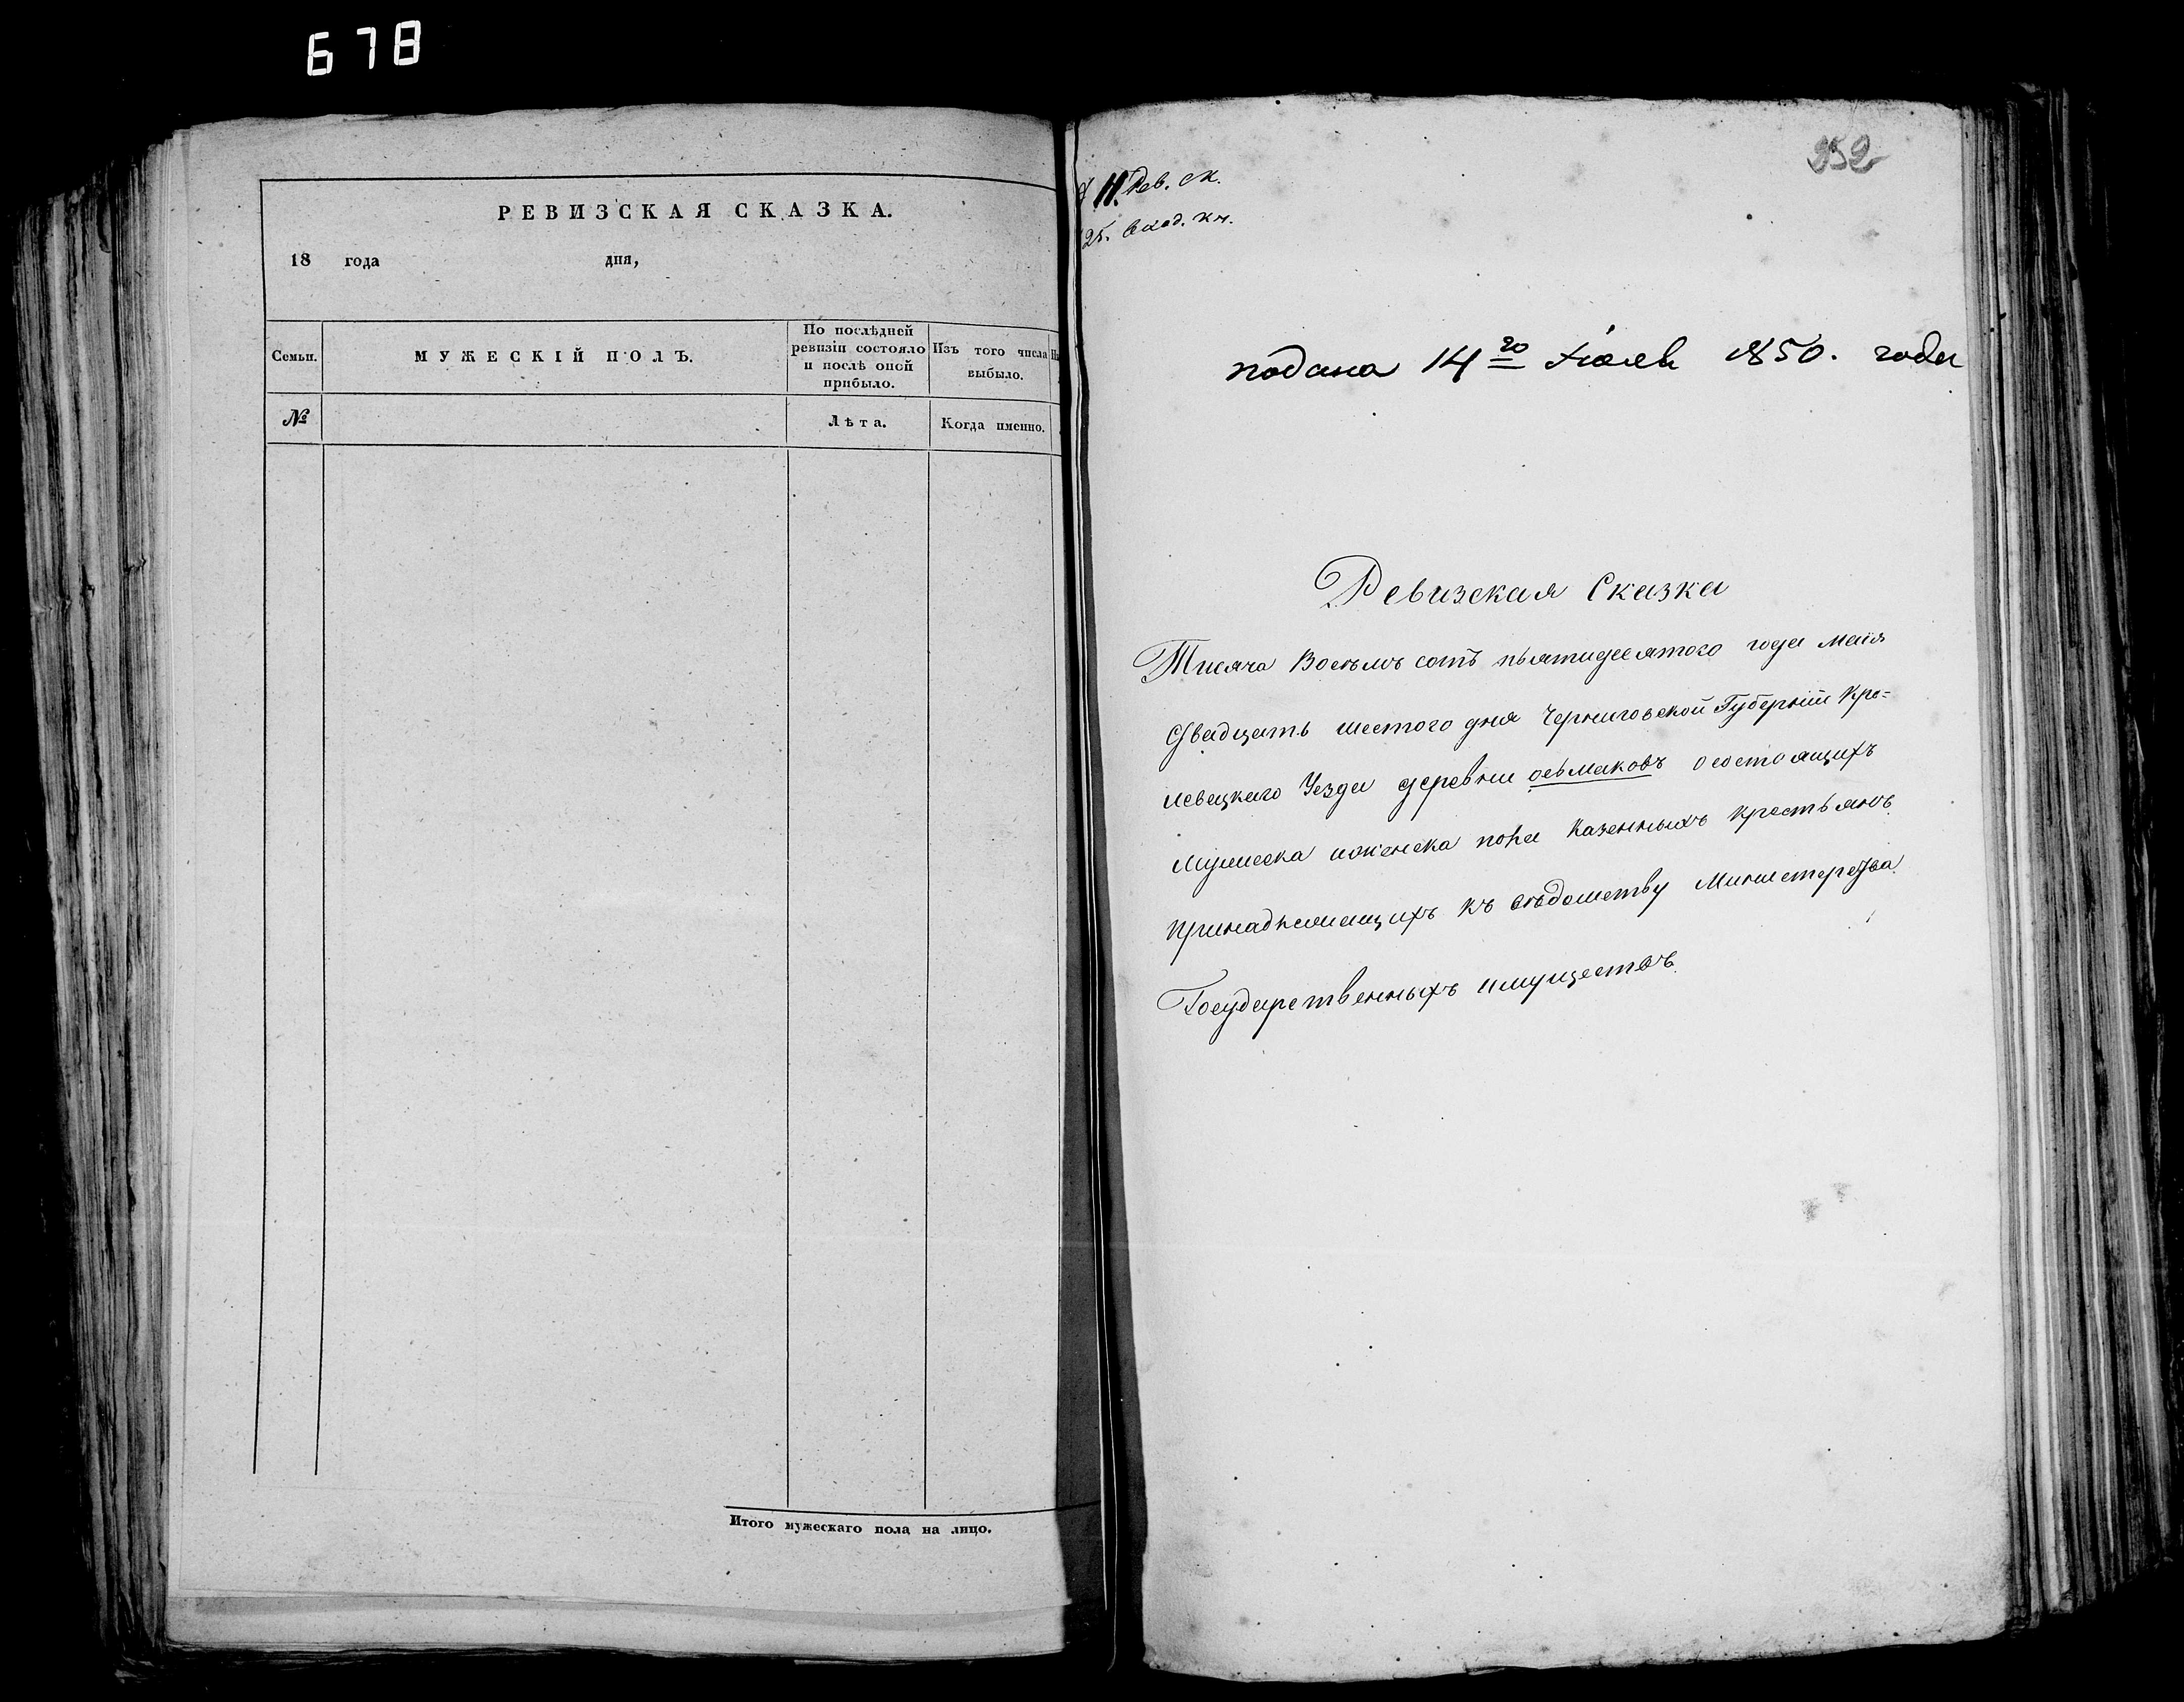 678
РЕВИЗСКАЯ СКАЗКА.
18 года дня,
Семьи.
МУЖЕСКІЙ ПОЛЪ.
По послѣдней
ревизіи состояло
и послѣ оной
прибыло.
Изъ того числа
выбыло.
№
Лѣта.
Когда именно.
Итого мужескаго пола на лицо.
11. Рев. ск.
25. вход. кн.
подана 14го Июля 1850. года
Ревизская Сказка
Тисяча Восемъ сотъ пьятидесятого года маія
двадцать шестого дня Черниговской Губерніи Кро=
левецкаго Уезда деревни осьмаковъ осостоящихъ
мужеска иженска пола Казенныхъ крестьянъ
принадлежащихъ къ въдомству Министерства
Государственныхъ имуществъ